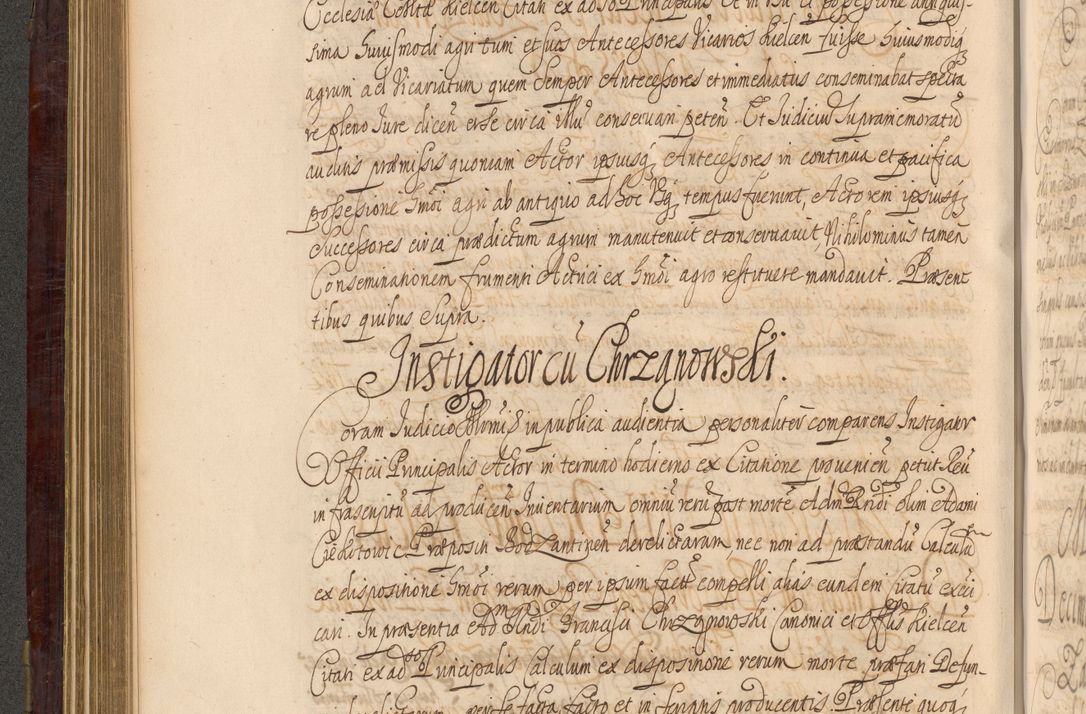 Ecclesia Coll̃ta Kielcen Citati ex adso Principalis et in
sima huiusmodi agri tum et suos Antecessores Vicarios Kielcen fuisse huiusmodiq̃
agrum ad Vicariatum quem Semper Antecessores et immediatus conseminabat specta
re pleno Jure dicen̄ et se circa illū conseruari peten̄. Et Judiciū Supramemoratū
auditis præmissis quoniam Actor ipsiusq̃ Antecessores in continua et pacifica
possessione hmōi agri ab antiquo ad hoc usq̃ tempus fuerunt, Actorem ipsiusq̃
Successores circa prædictum agrum manutenuit et conseruauit, Nihilominus tamen
Conseminationem frumenti Actrici ex hmōi agro restituere mandauit. Præsen̄
tibus quibus Supra.
Instigator cū Chrząnowski.
Coram Judicio in publica audientia personaliter comparens Instigator
Officii Principalis Actor in termino hodierno ex Citatione prouenien̄ petit Reū
infrascriptū ad producen̄ Inuentarium omniū rerū post mortē Adm Rndi olim Adami
Præposit Bodzantinen̄ derelictarum nec non ad præstandū Calculū
ex dispositione hmōi rerum per ipsum compelli alias eundem Citatū
cari. In præsentia Adm Rndi Francisci Chrząnowski Canonici et Offlis Kielcen̄
Citati ex adso Principalis Calculum ex dispositione rerum morte præfati Defun-
facta facto et in scriptis producentis. Præsente quoq̃